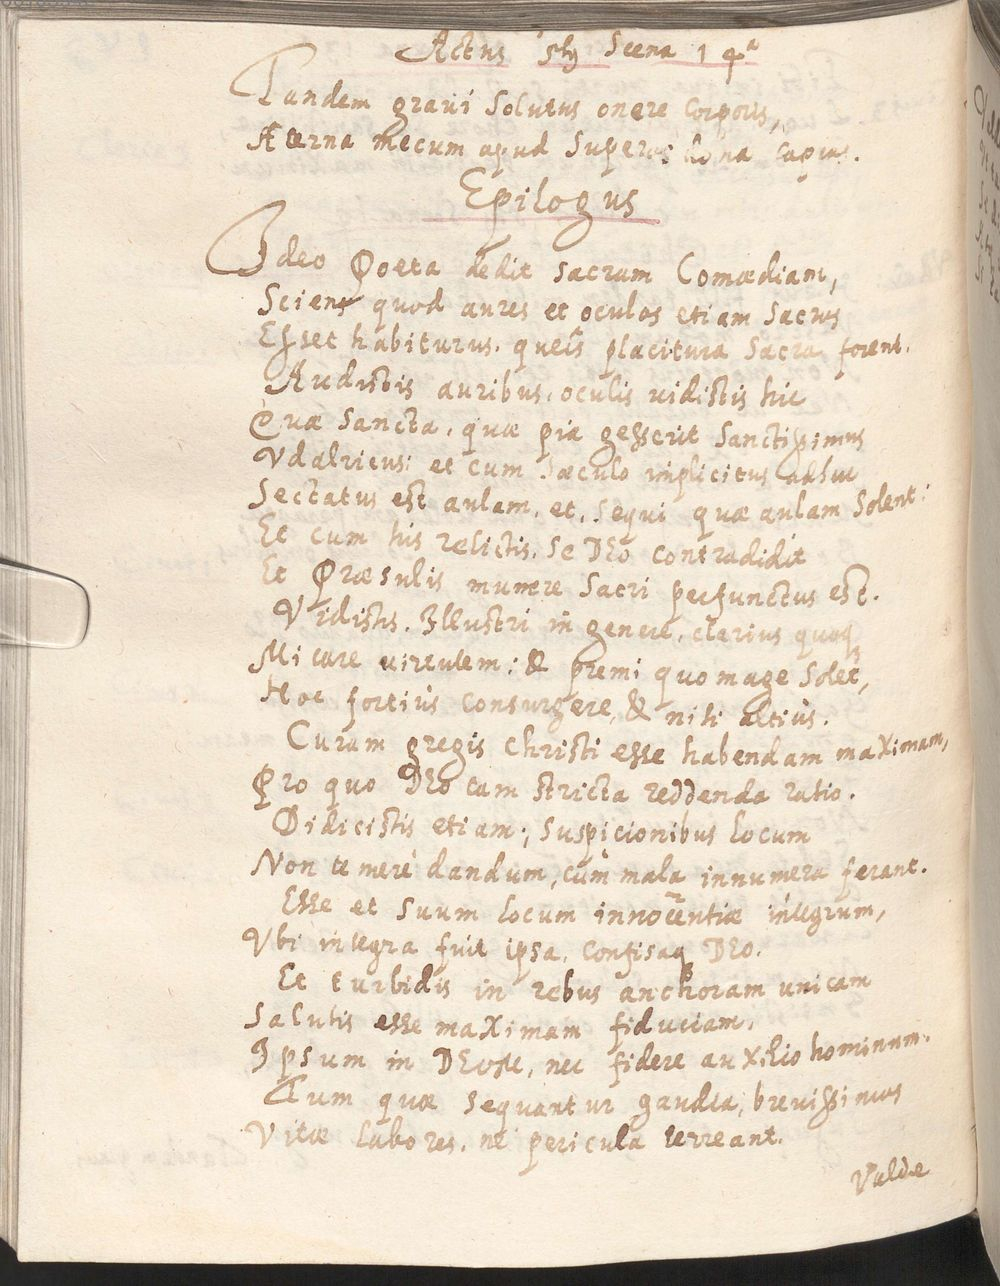 Actus 5tg Scena 14a
Tandem graui Solutus onere Corporis,
Æterna mecum apud Superos dona capias.
Epilogus
Ideo Poeta dedit sacram Comœdiam,
Sciens quod aures et oculos etiam Sacros
Esset habiturus. queis placitura Sacra forent.
Audistis auribus, oculis uidistis hic
Quæ Sancta, quæ pia gesserit Sanctissimus
Vdalricus: et cum Sæculo implicitus adhuc
Sectatus est aulam, et, Sequi quæ aulam Solent:
Et cum his relictis, se DEO contradidit
Et Præsulis munere Sacri perfunctus est.
Vidistis. Illustri in genere, clarius quoq
Micare uirtutem: & premi quo mage Solet,
Hoc fortius consurgere, & niti altius.
Curam gregis Christi esse habendam maximam,
Pro quo DEO tam stricta reddenda ratio.
Didicistis etiam; Suspicionibus Locum
Non temerè dandum, cùm mala innumera ferant.
Esse et Suum Locum innocentiæ integrum,
Vbi integra fuit ipsa, Confisaq DEO.
Et turbidis in rebus anchoram unicam
Salutis esse maximam fiduciam,
Ipsum in DEum, nec fidere auxilio hominum.
Cum quæ sequantur gaudia, breuissimos
Vitæ Labores, ne pericula terreant.
Valde